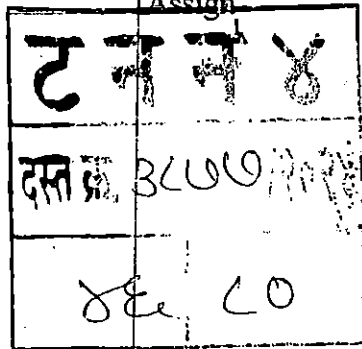 Assign
ट न न ४
दस्त क्र. ३८७७
४६ ८०